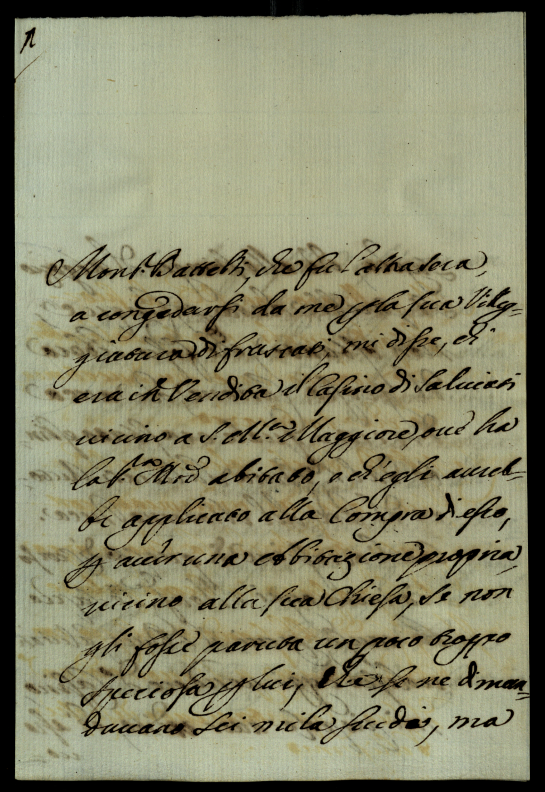 Mons.r Battelli, che fù l'altra sera,
a congedarsi da me p la sua Villeg-
giatura di frascati, mi disse, ch'
era in Vendita il Casino di Salviati
vicino a S. M.a Maggiore, ove ha
la abitato, e ch'egli aureb-
be applicato alla Compra di esso,
p auer una abbitazione propria,
vicino alla sua Chiesa, se non
gli fosse paruta un poco troppo
speciosa p lui, che se ne diman-
davano sei mila scudi, ma